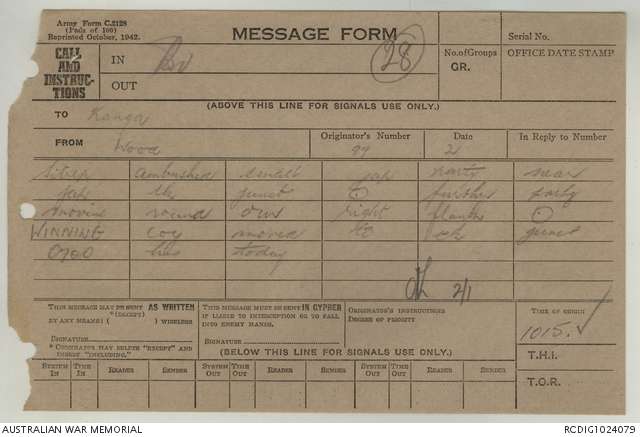 Army Form C.2128
(Pads of 100)
Reprinted October, 1942.
MESSAGE FORM
28
Serial No.
CALL AND INSTRUCTIONS
IN
OUT
No. of Groups
GR.
OFFICE DATE STAMP
(ABOVE THIS LINE FOR SIGNALS USE ONLY.)
TO Kanga
FROM Wood
Originator's Number 97
Date 2
In Reply to Number
ambushed small Jap party near
junct further party
moving round our right flank
WINNING coy moved to junct
0700 hrs today
2/1
THIS MESSAGE MAY BE SENT AS WRITTEN
(EXCEPT)
BY ANY MEANS ( ) WIRELESS
SIGNATURE
* ORIGINATOR MAY DELETE "EXCEPT" AND INSERT "INCLUDING."
THIS MESSAGE MUST BE SENT IN CYPHER
IF LIABLE TO INTERCEPTION OR TO FALL INTO ENEMY HANDS.
SIGNATURE
ORIGINATOR'S INSTRUCTIONS
DEGREE OF PRIORITY
TIME OF ORIGIN
1015.
(BELOW THIS LINE FOR SIGNALS USE ONLY.)
T.H.I.
T.O.R.
SYSTEM IN
TIME IN
READER
SENDER
SYSTEM OUT
TIME OUT
READER
SENDER
SYSTEM OUT
TIME OUT
READER
SENDER
AUSTRALIAN WAR MEMORIAL
RCDIG1024079